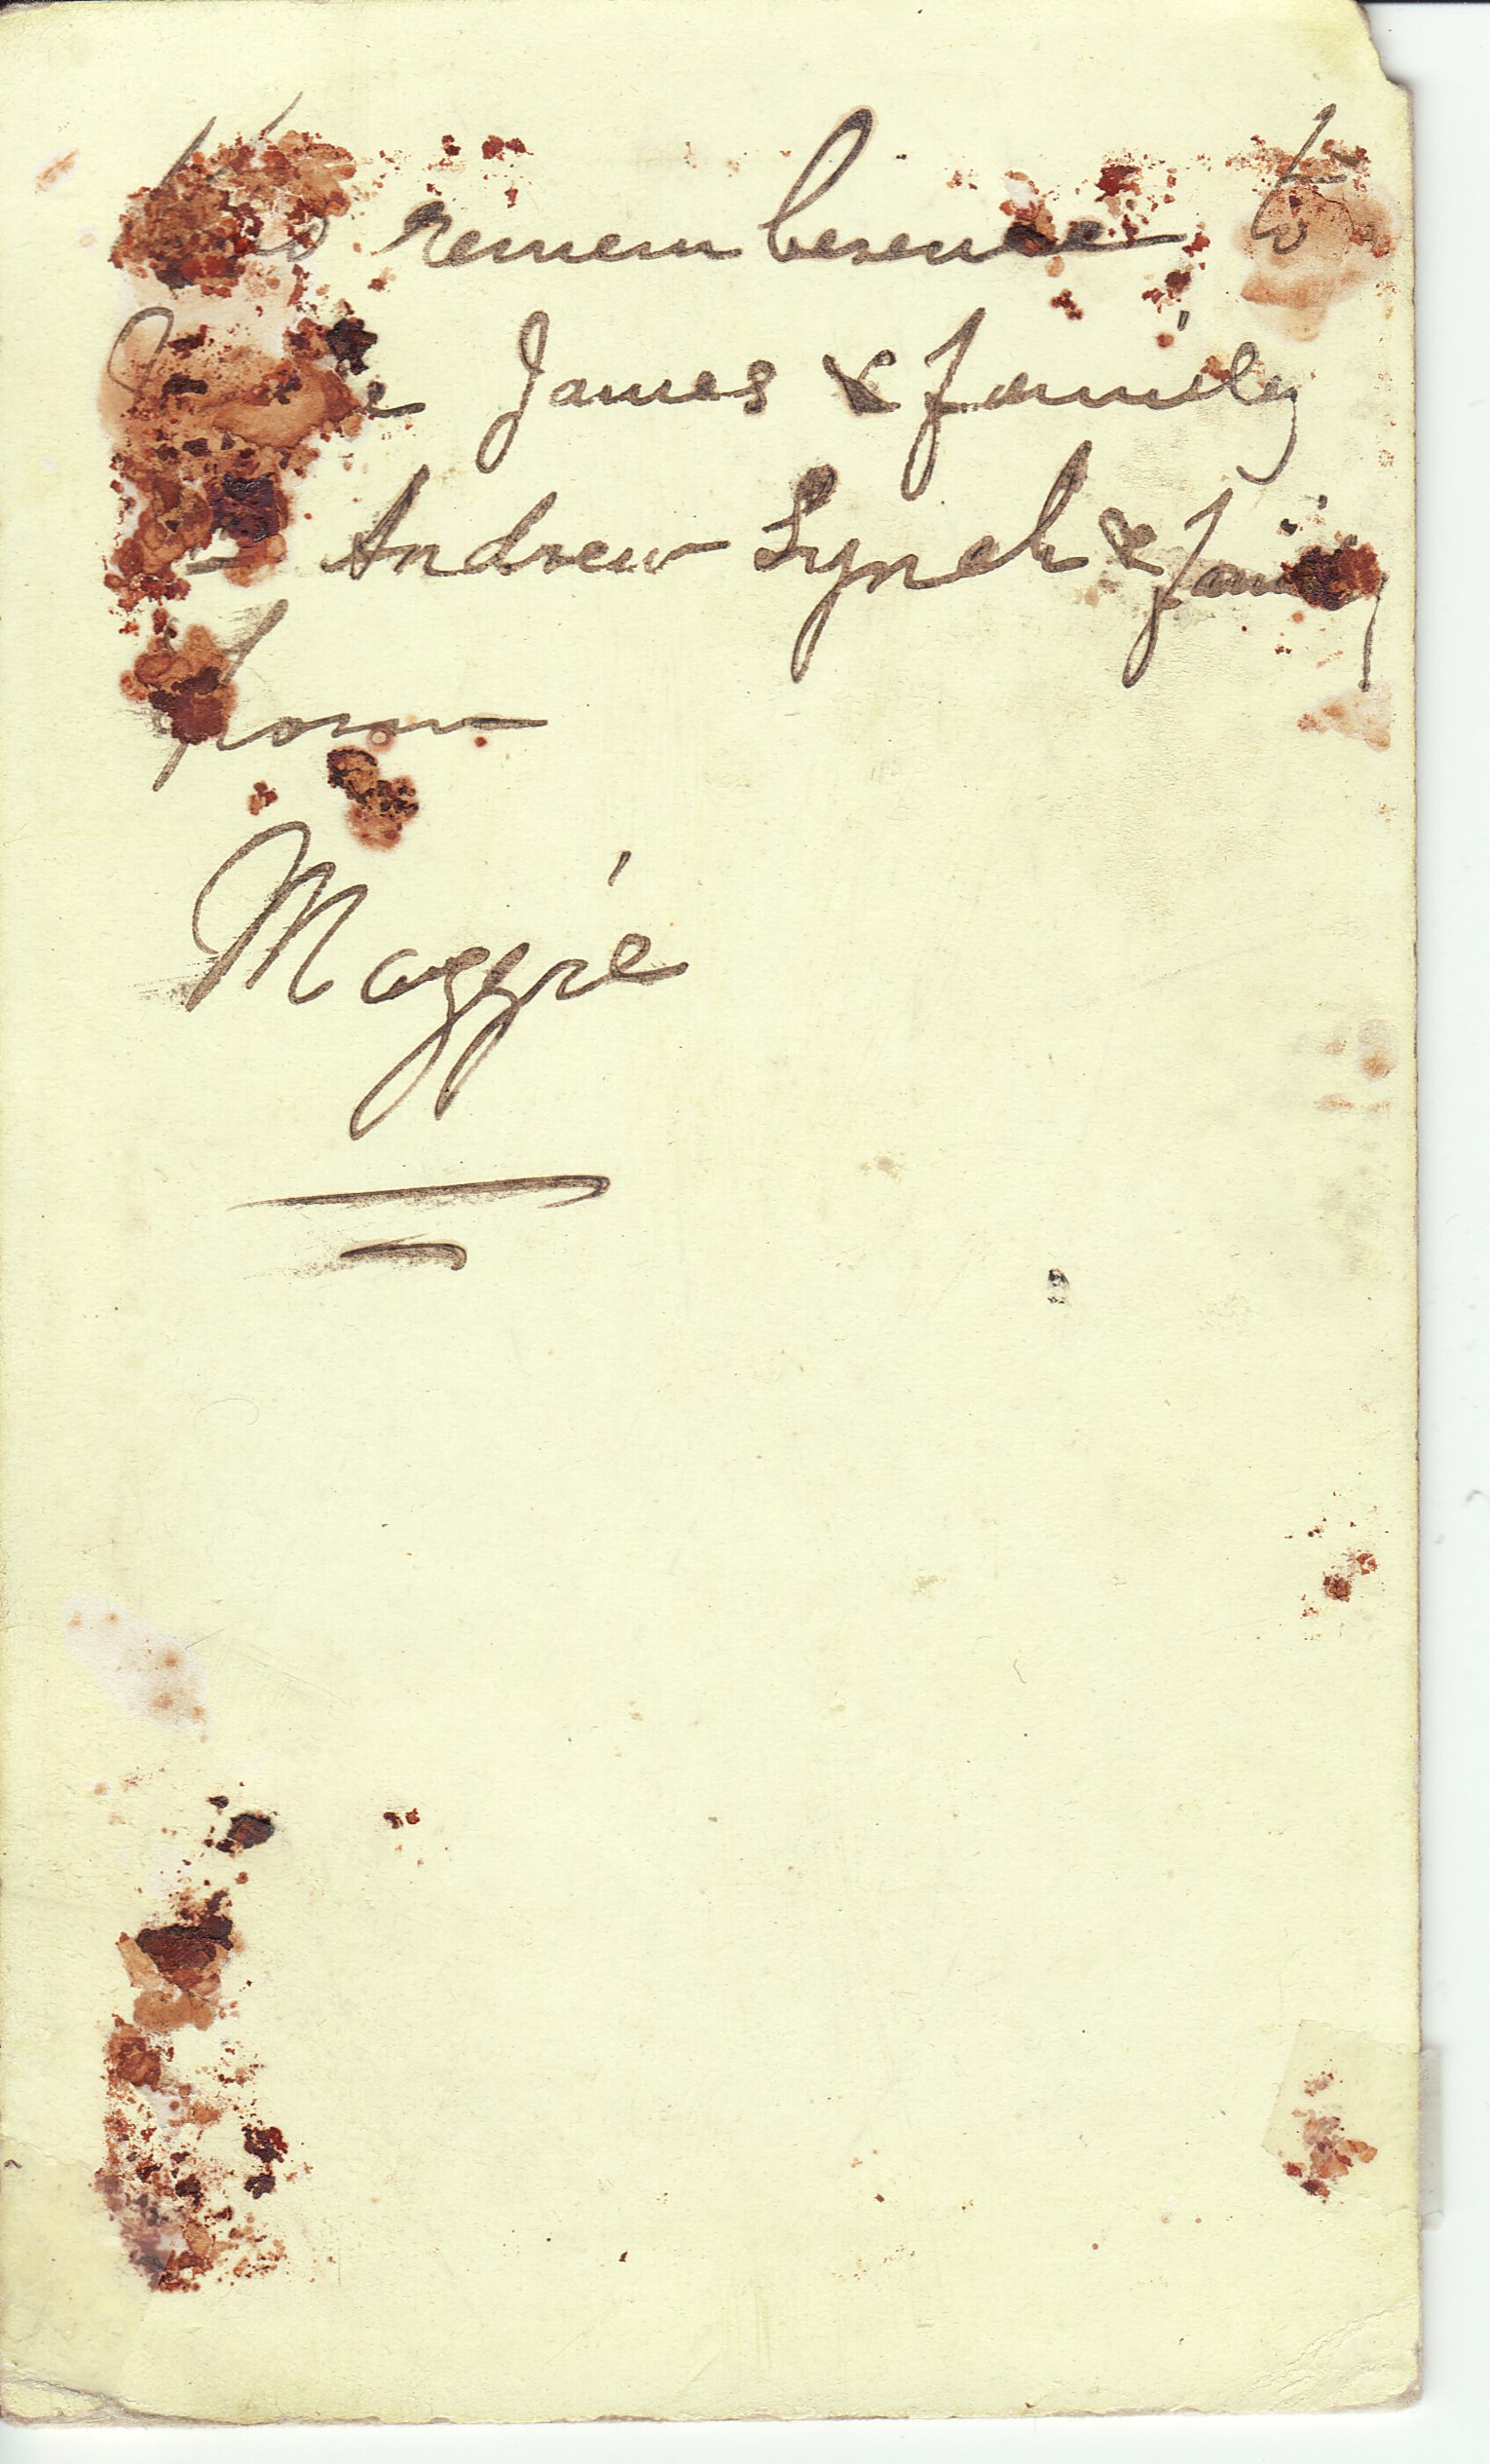 rememberence to
James & family
Andrew Lynch & family
from
Maggie